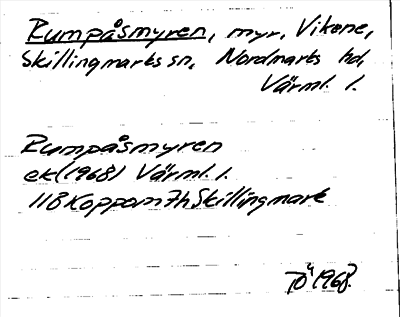 Rumpåsmyren, myr, Vikene,
Skillingmarks sn, Nordmarks hd,
Värml. l.
Rumpåsmyren
ek (1968) Värml. l.
11B Koppom 7h Skillingmark
TÖ 1968.